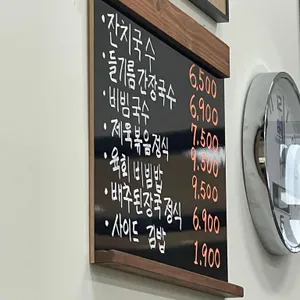 · 잔치국수 6,500
· 들기름간장국수 6,900
· 비빔국수 7,500
· 제육볶음정식 9,500
· 육회 비빔밥 9,500
· 배추된장국정식 6,900
· 사이드 김밥 1,900